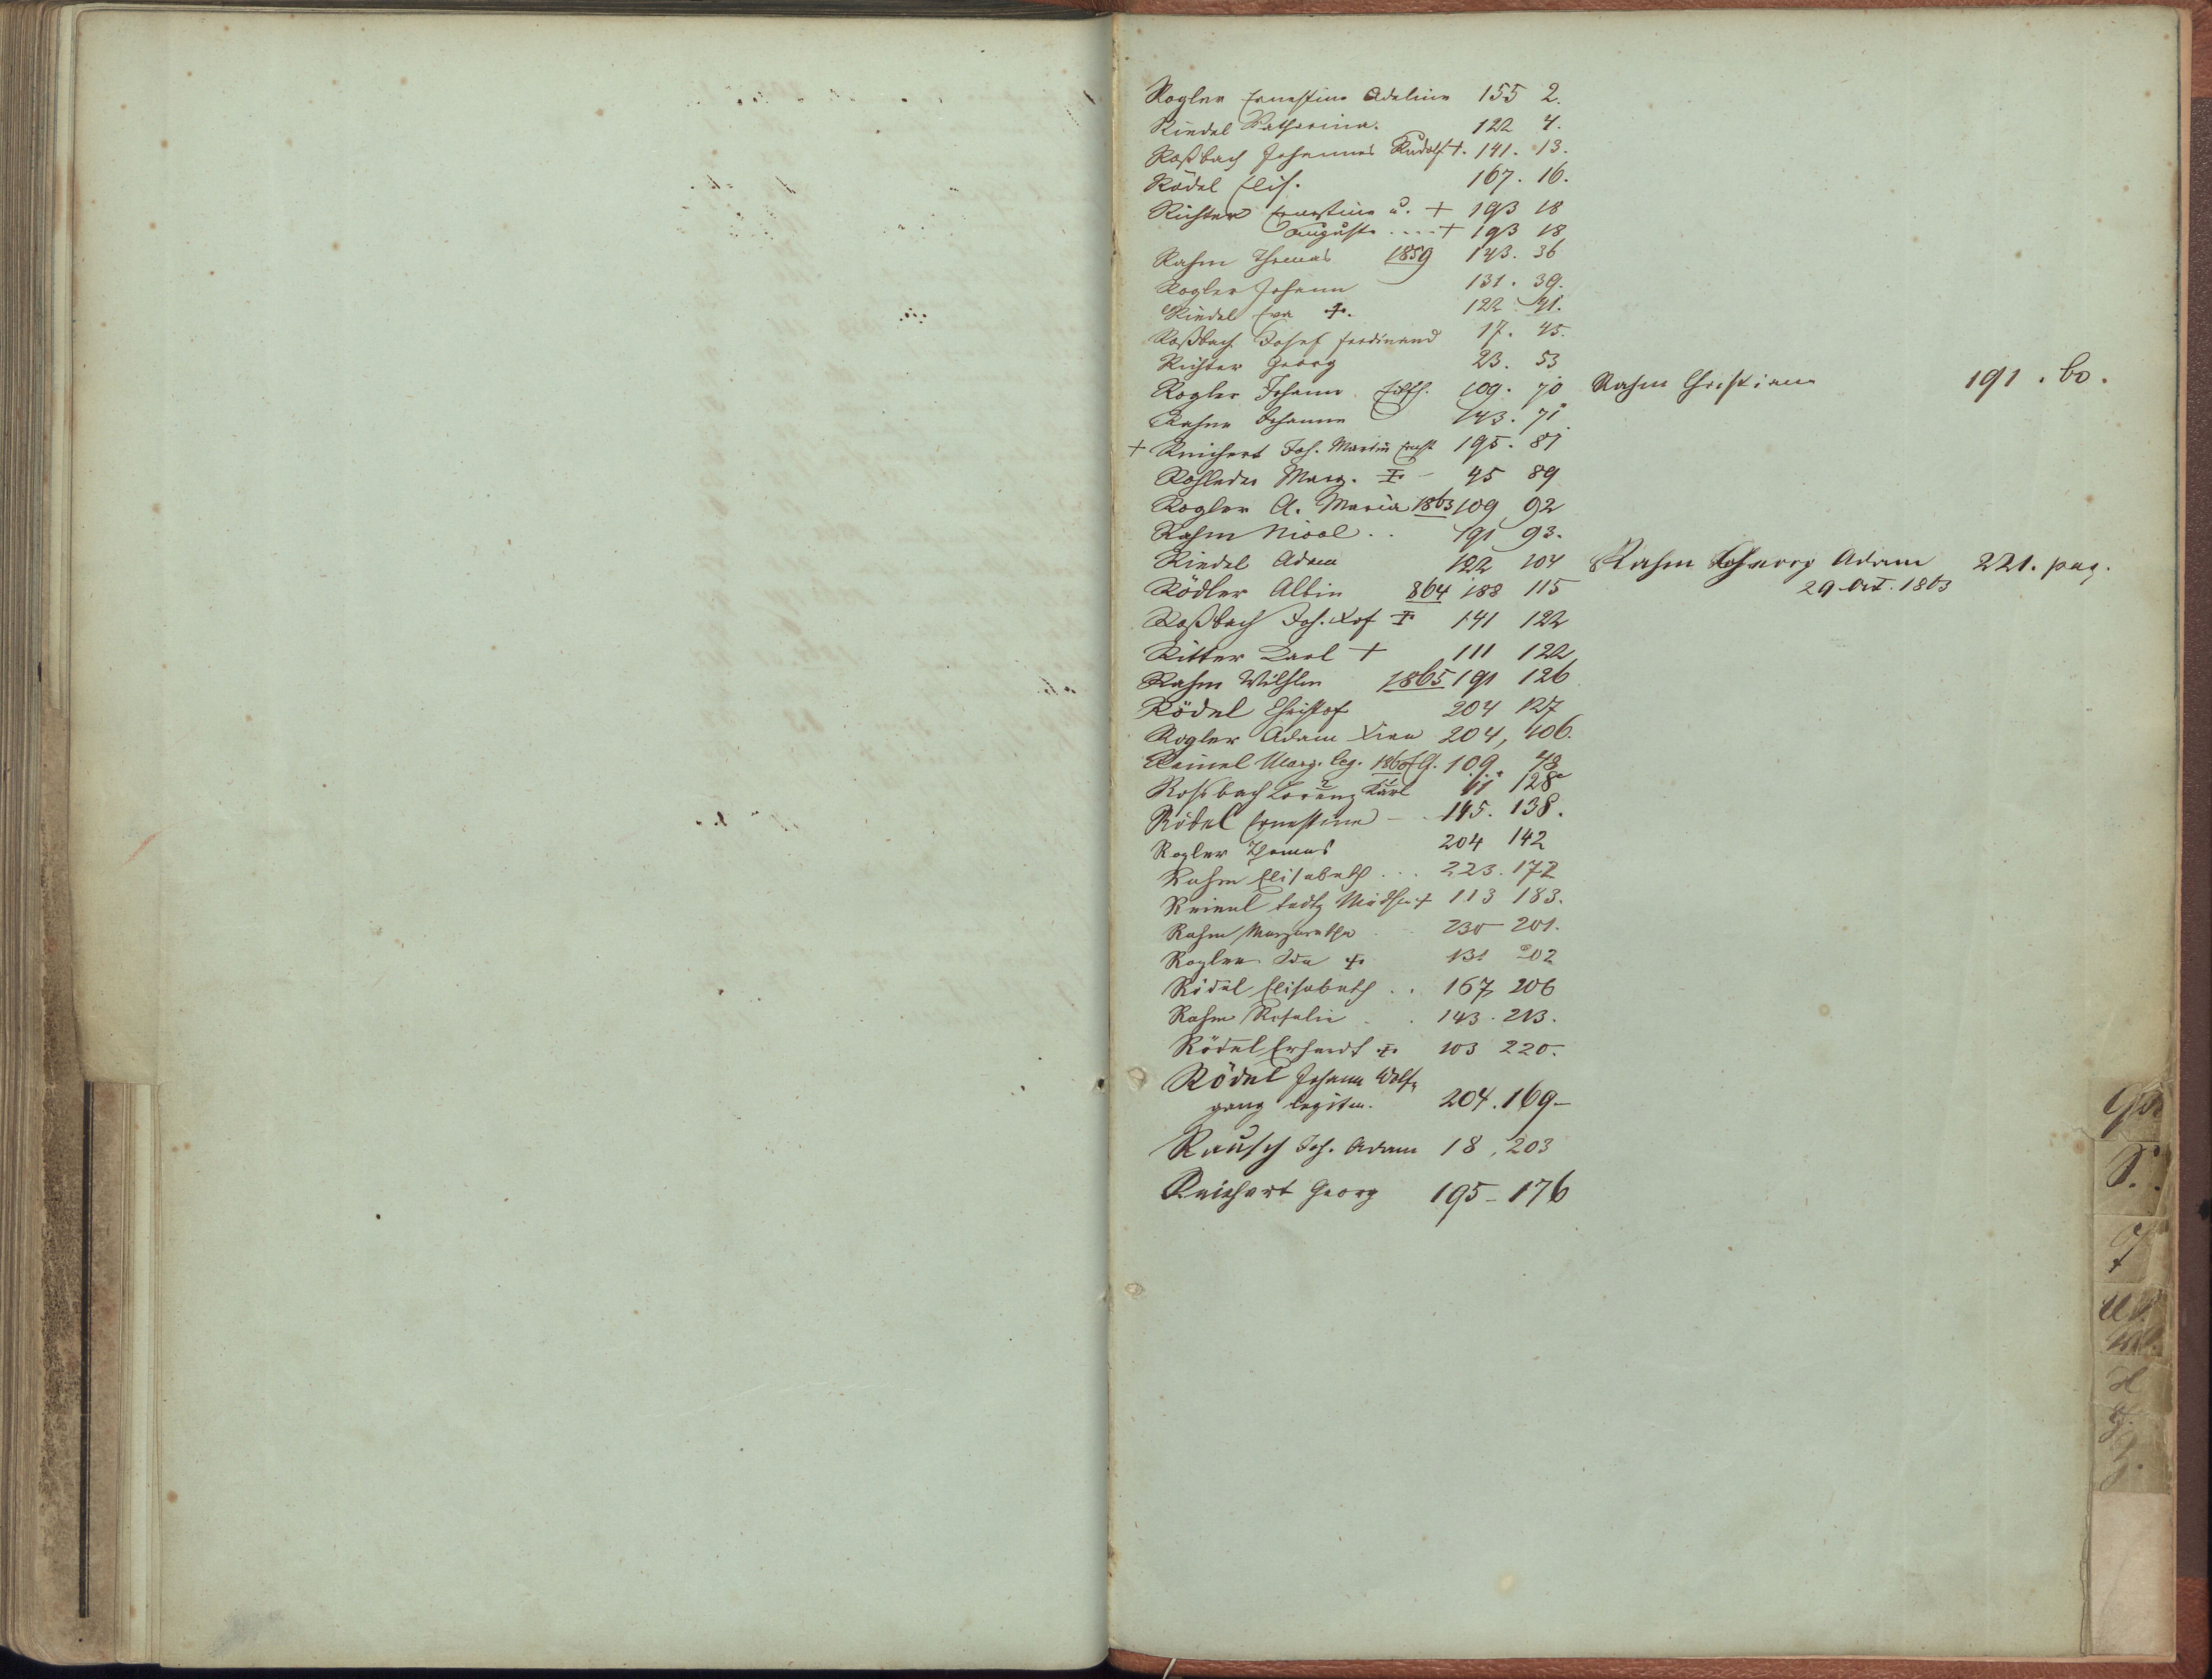 Rogler Ernestine Adeline 155 2.
Riedel Katharina. 122 4.
Roßbach Johannes Rudolf +. 141. 13.
Rödel Elis. 167. 16.
Richter Ernestine u. + 193 18
Auguste .... + 193 18
Rahm Thomas 1859 143. 36
Rogler Johann 131. 39.
Riedel Eva +. 122 41.
Roßbach Josef Ferdinand 17. 45.
Richter Georg 23. 53
Rogler Johann 109. 70 Rahm Christiane 191. 60.
Rahm Johanna 143. 71.
+ Reichert Joh. Martin Ernst 195. 87
Rohleder Marg. + 45 89
Rogler A. Maria 1863 109 92
Rahm Nicol .. 191 93.
Riedel Adam 122 104 Rahm Georg Adam 221. pag.
29 Oct. 1863
Rödler Albin 864 188 115
Roßbach Joh. + 141 122
Ritter Karl + 111 122
Rahm Wilhlm 1865 191 126
Rödel Christof 204 127
Rogler Adam 204, 106.
Reinel Marg. leg. 109. 48
Rossbach Lorenz Karl 128
Rödel Ernestine - 145. 138.
Rogler Thomas 204 142
Rahm Elisabeth ... 223. 172
Reinel Mädchen + 113 183.
Rahm Margaretha 230 201.
Rogler Ida + 131 202
Rödel Elisabeth .. 167, 206
Rahm Rosalie . . 143. 213.
Rödel Erhardt + 103 220.
Rödel Johann Wolf-
gang legitm. 204. 169-
Rausch Joh. Adam 18, 203
Reichert Georg 195 - 176
S.
T
U.
W.
Z.